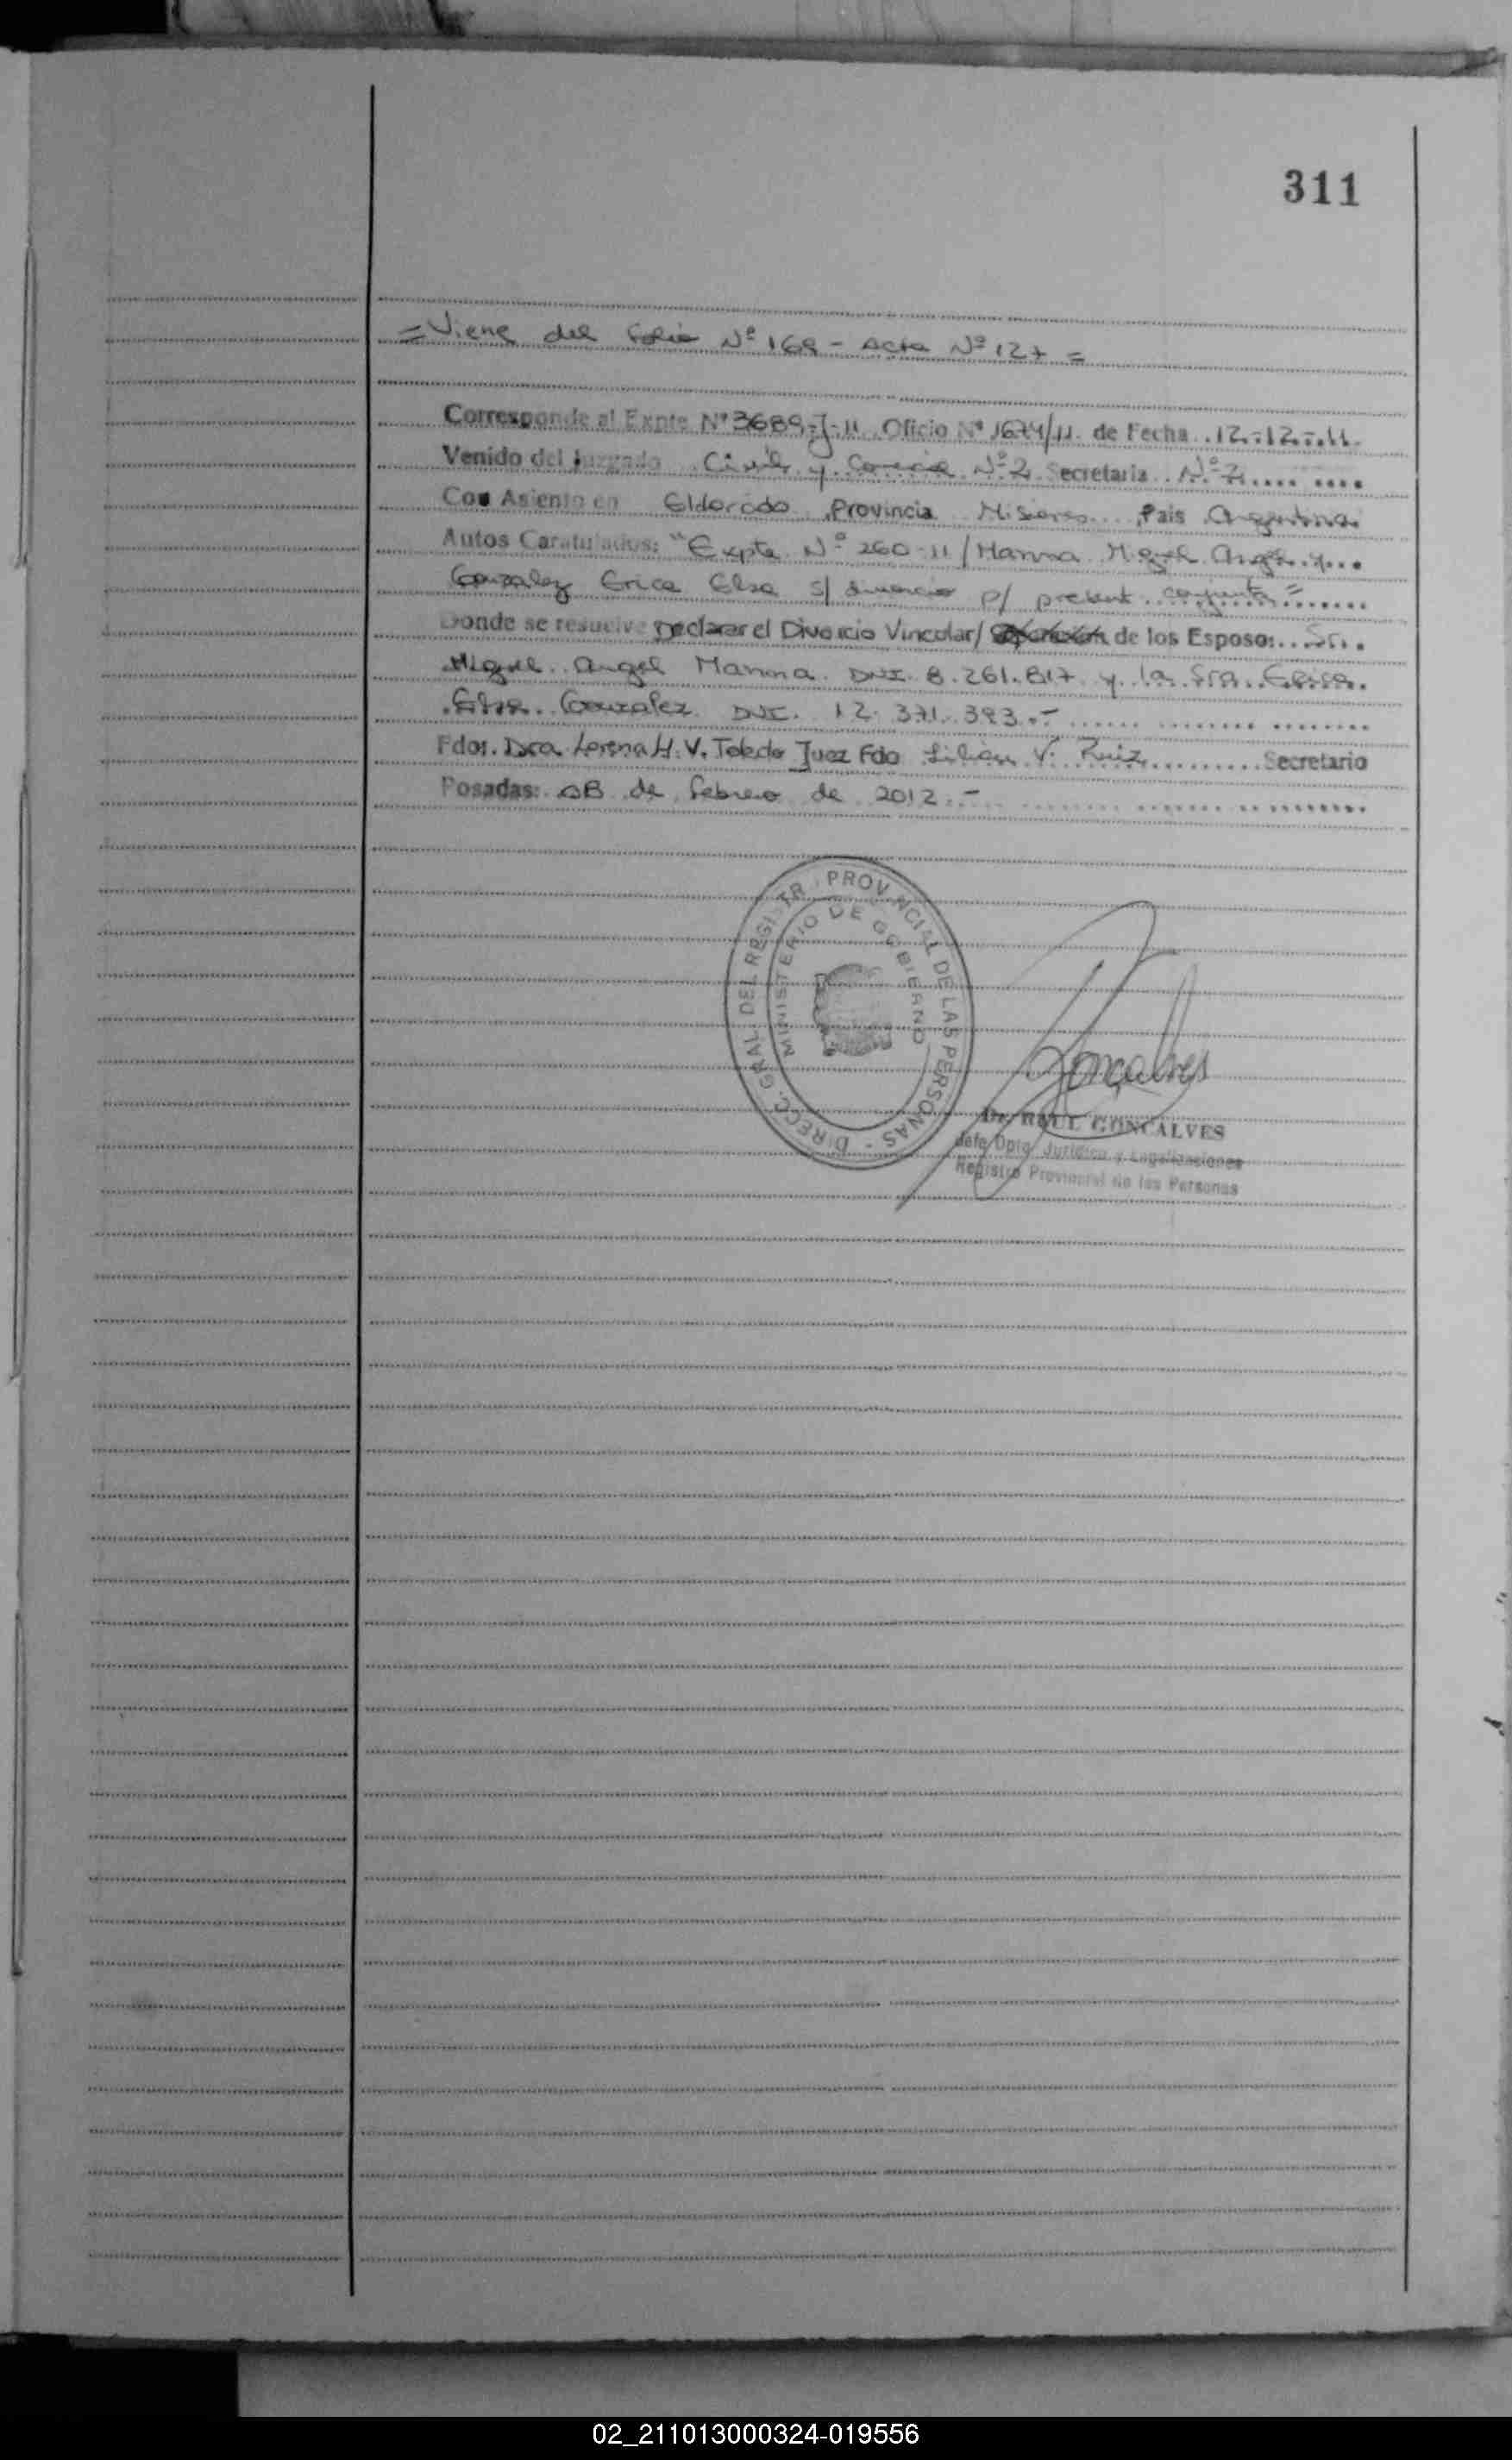 311
= Viene del Folio Nº 169 - Acta Nº 127 =
Corresponde al Expte Nº 3689-J-11 Oficio Nº 1674/11. de Fecha 12-12-11.
Venido del Juzgado Civil y Comercial Nº 2 Secretaria Nº
Con Asiento en Eldorado Provincia Misiones Pais Argentina
Autos Caratulados: "Expte Nº 260-11/Hanna Miguel Angel y
Gonzalez Erica Elsa s/ divorcio p/ present. conjunta =
Donde se resuelve Declarar el Divorcio Vincular/ de los Esposo: Sr.
Miguel Angel Hanna DNI 8.261.817 y la Sra. Erica
Elsa Gonzalez DNI. 12.371.393.-
Fdos. Dra. Lorena H. V. Toledo Juez Fdo Lilian V. Ruiz Secretario
Posadas: 08 de febrero de 2012.-
DIRECC. GRAL. DEL REGISTR. PROVINCIAL DE LAS PERSONAS -
MINISTERIO DE GOBIERNO
Goncalves
Dr. RAUL GONCALVES
Jefe Dpto. Juridico y Legalizaciones
Registro Provincial de las Personas
02_211013000324-019556